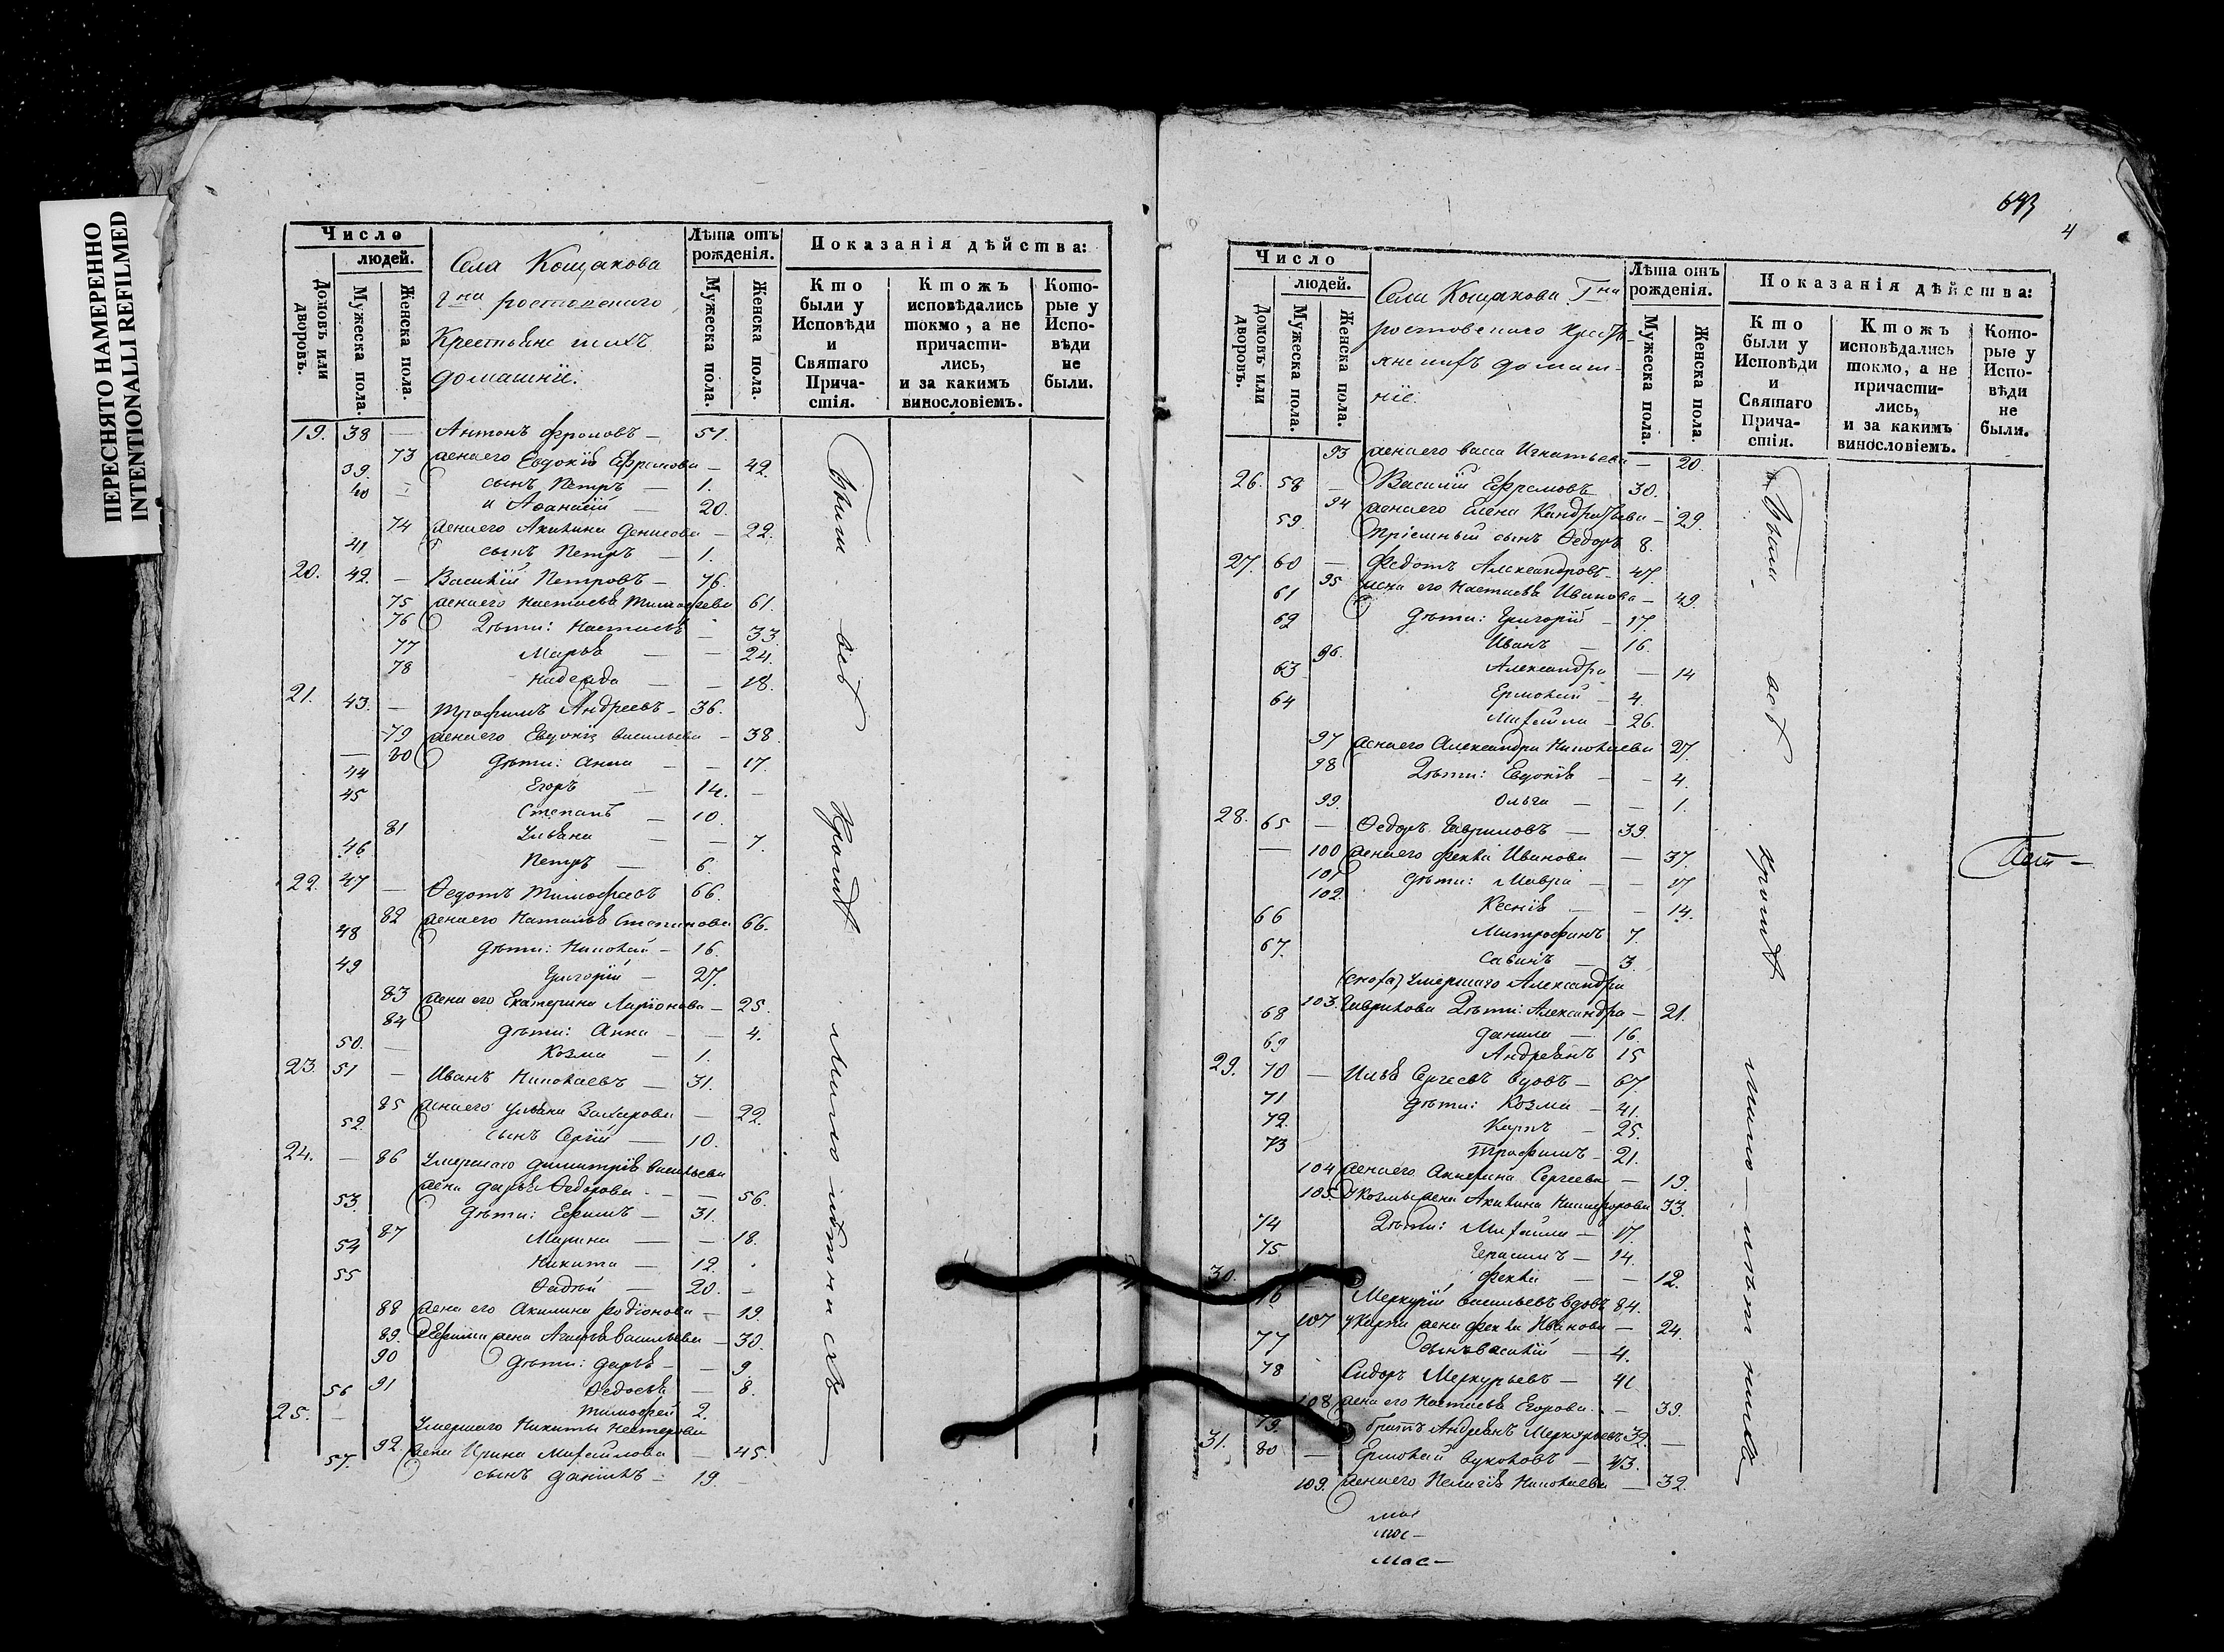 ПЕРЕСНЯТО НАМЕРЕННО
INTENTIONALLI REFILMED
Число
людей.
Домовъ или дворовъ.
Мужеска пола.
Женска пола.
Села Кощакова
Гна ростовскаго
Крестьяне ихъ
домашніи.
Лѣта отъ рожденія.
Мужеска пола.
Женска пола.
Показанія дѣйства:
Кто были у Исповѣди и Святаго Причастія.
Ктожъ исповѣдались токмо, а не причастились, и за какимъ винословіемъ.
Которые у Исповѣди не были.
19. 38 — Антонъ Фроловъ — 51.
73 жена его Евдокія Ефремова — 42.
39. сынъ Петръ — 1.
40 — и Аѳанасій — 20.
74 жена его Акилина Денисова — 22.
41 сынъ Петръ — 1.
20. 42. — Василій Петровъ — 76.
75 жена его Настасья Тимофеева 61.
76 Дѣти: Настасья — 33.
77 Марья — — 24.
78 Надежда — — 18.
21. 43. — Трофимъ Андреевъ — 36.
79 жена его Евдокія Васильева — 38
— 80 дѣти: Анна — — 17.
44 Егоръ — 14. —
45 Степанъ — 10.
81 Ульяна — — 7.
46. Петръ — 6.
22. 47 — Ѳедотъ Тимофеевъ 66.
82 жена его Наталья Степанова 66.
48 дѣти: Николай — 16.
49 Григорій — 27.
83 жена его Екатерина Ларіонова — 25.
84 дѣти: Анна — — 4.
50. — Козма — 1.
23. 51 — Иванъ Николаевъ — 31.
85 жена его Ульяна Захарова — 22.
52. сынъ Сергій — 10.
24. — 86 Умершаго Димитрія Васильева
жена Дарья Ѳедорова — — 56.
53. дѣти: Ефимъ — 31.
87 Марина — — 18.
54 Никита — 12.
55 Фадѣй — 20. —
88 жена его Акилина Родіонова — 19.
89. У Ефима жена Агафья Васильева — 30.
90 дѣти: Дарья — — 9
91 Ѳедосья — 8.
56 Тимофей 2.
25. — Умершаго Никиты Нестерова
92. жена Ирина Михайлова — 45.
57. сынъ Данилъ — 19.
Были всѣ кромѣ малолѣтнихъ
643
4
Число
людей.
Домовъ или дворовъ.
Мужеска пола.
Женска пола.
Села Кощакова Гна
ростовскаго крестьяне
ихъ домашніе.
Лѣта отъ рожденія.
Мужеска пола.
Женска пола.
Показанія дѣйства:
Кто были у Исповѣди и Святаго Причастія.
Ктожъ исповѣдались токмо, а не причастились, и за какимъ винословіемъ.
Которые у Исповѣди не были.
93 жена его Васа Игнатьева — 20.
26. 58 — Василій Ефремовъ 30.
94 жена его Елена Кандратьева — 29.
59. Пріемный сынъ Ѳедоръ 8.
27. 60 — Федотъ Александровъ — 47.
95 жена его Настасья Иванова — 49.
61 дѣти: Григорій — 17
62 Иванъ — 16.
96. Александра — 14
63 Ермолай — 4.
64 Михайла — 26.
97 жена его Александра Николаева 27.
98 Дѣти: Евдокія — — 4.
99. Ольга — — 1.
28. 65 — Ѳедоръ Гавриловъ — 39.
— 100 жена его Фекла Иванова — 37.
101 дѣти: Мавра — — 17
102. Ксенія — — 14.
66 Митрофанъ 7.
67. Савинъ — 3.
умершаго Александра
103. Гаврилова Дѣти: Александра — 21.
68 Данила — 16.
69 Андреянъ 15
29. 70 — Илья Сергеевъ вдовъ — 67.
71 дѣти: Козма — 41.
72. Карпъ — 25.
73 Трофимъ — 21.
104 жена его Акилина Сергеева — 19.
105. У Козмы жена Акилина Никифорова 33.
74 Дѣти: Михайла — 17.
75 Герасимъ — 14.
Фекла — — 12.
30. 76 Меркурій Васильевъ вдовъ 84.
107 У Карпа жена Фекла Иванова — 24.
77 сынъ Василій — 4.
78 Сидоръ Меркурьевъ — 41
108 жена его Настасья Егорова — 39.
79. братъ Андреянъ Меркурьевъ 32. —
31. 80 — Ермолай Вуколовъ — 43.
109. жена его Пелагія Николаева — 32.
Были всѣ кромѣ малолѣтнихъ